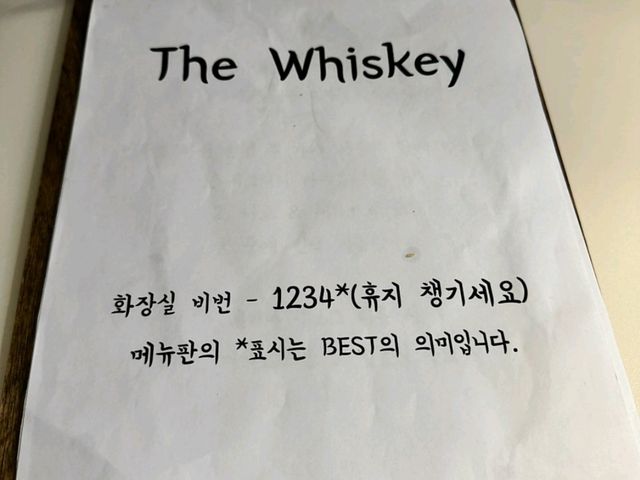 The Whiskey
화장실 비번 - 1234*(휴지 챙기세요)
메뉴판의 *표시는 BEST의 의미입니다.